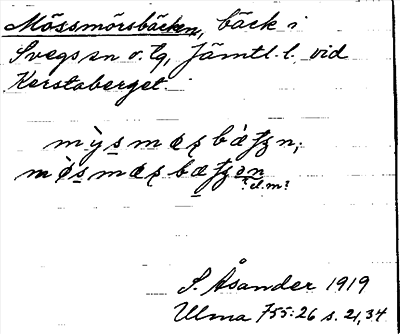 Mössmörsbäcken, bäck i
Svegs sn o. tg, Jämtl. l. vid
Kerstaberget.
mỳsmœrbæ̀ʃʒn,
mø̀smœrbæʃʒən
? el. m?
S. Åsander 1919
Ulma 755:26 s. 21,34